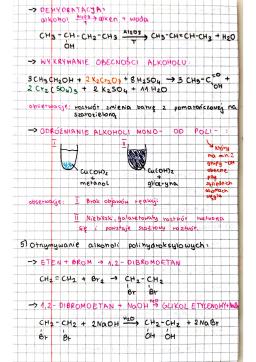 → DEHYDRATACJA:
alkohol Al2O3 T → alken + woda
CH3-CH-CH2-CH3 Al2O3 T → CH3-CH=CH-CH3 + H2O
OH
→ WYKRYWANIE OBECNOŚCI ALKOHOLU:
3CH3CH2OH + 2K2Cr2O7 + 8H2SO4 → 3CH3-C=O +
OH
2Cr2(SO4)3 + 2K2SO4 + 11H2O
obserwacje: roztwór zmienia barwę z pomarańczowej na
szarozieloną
→ ODRÓŻNIANIE ALKOHOLI MONO- OD POLI-:
I II
które
mają min 2
grupy -OH
obecne
przy
sąsiednich
atomach
węgla
Cu(OH)2 Cu(OH)2
+ +
metanol gliceryna
obserwacje: I Brak objawów reakcji
II Niebieski, galaretowaty roztwór
się i powstaje szafirowy roztwór.
5) Otrzymywanie alkoholi polihydroksylowych:
→ ETEN + BROM → 1,2-DIBROMOETAN
CH2=CH2 + Br2 → CH2-CH2
Br Br
→ 1,2-DIBROMOETAN + NaOH H2O → GLIKOL ETYLENOWY
CH2-CH2 + 2NaOH H2O → CH2-CH2 + 2NaBr
Br Br OH OH